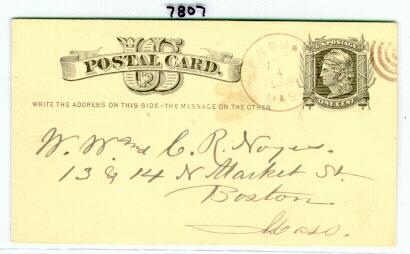 7807
US
POSTAL CARD.
U.S. POSTAGE
WRITE THE ADDRESS ON THIS SIDE - THE MESSAGE ON THE OTHER
ONE CENT
MAS
W. Wm and C. R. Noyes.
13 & 14 N Market St.
Boston
Mass.